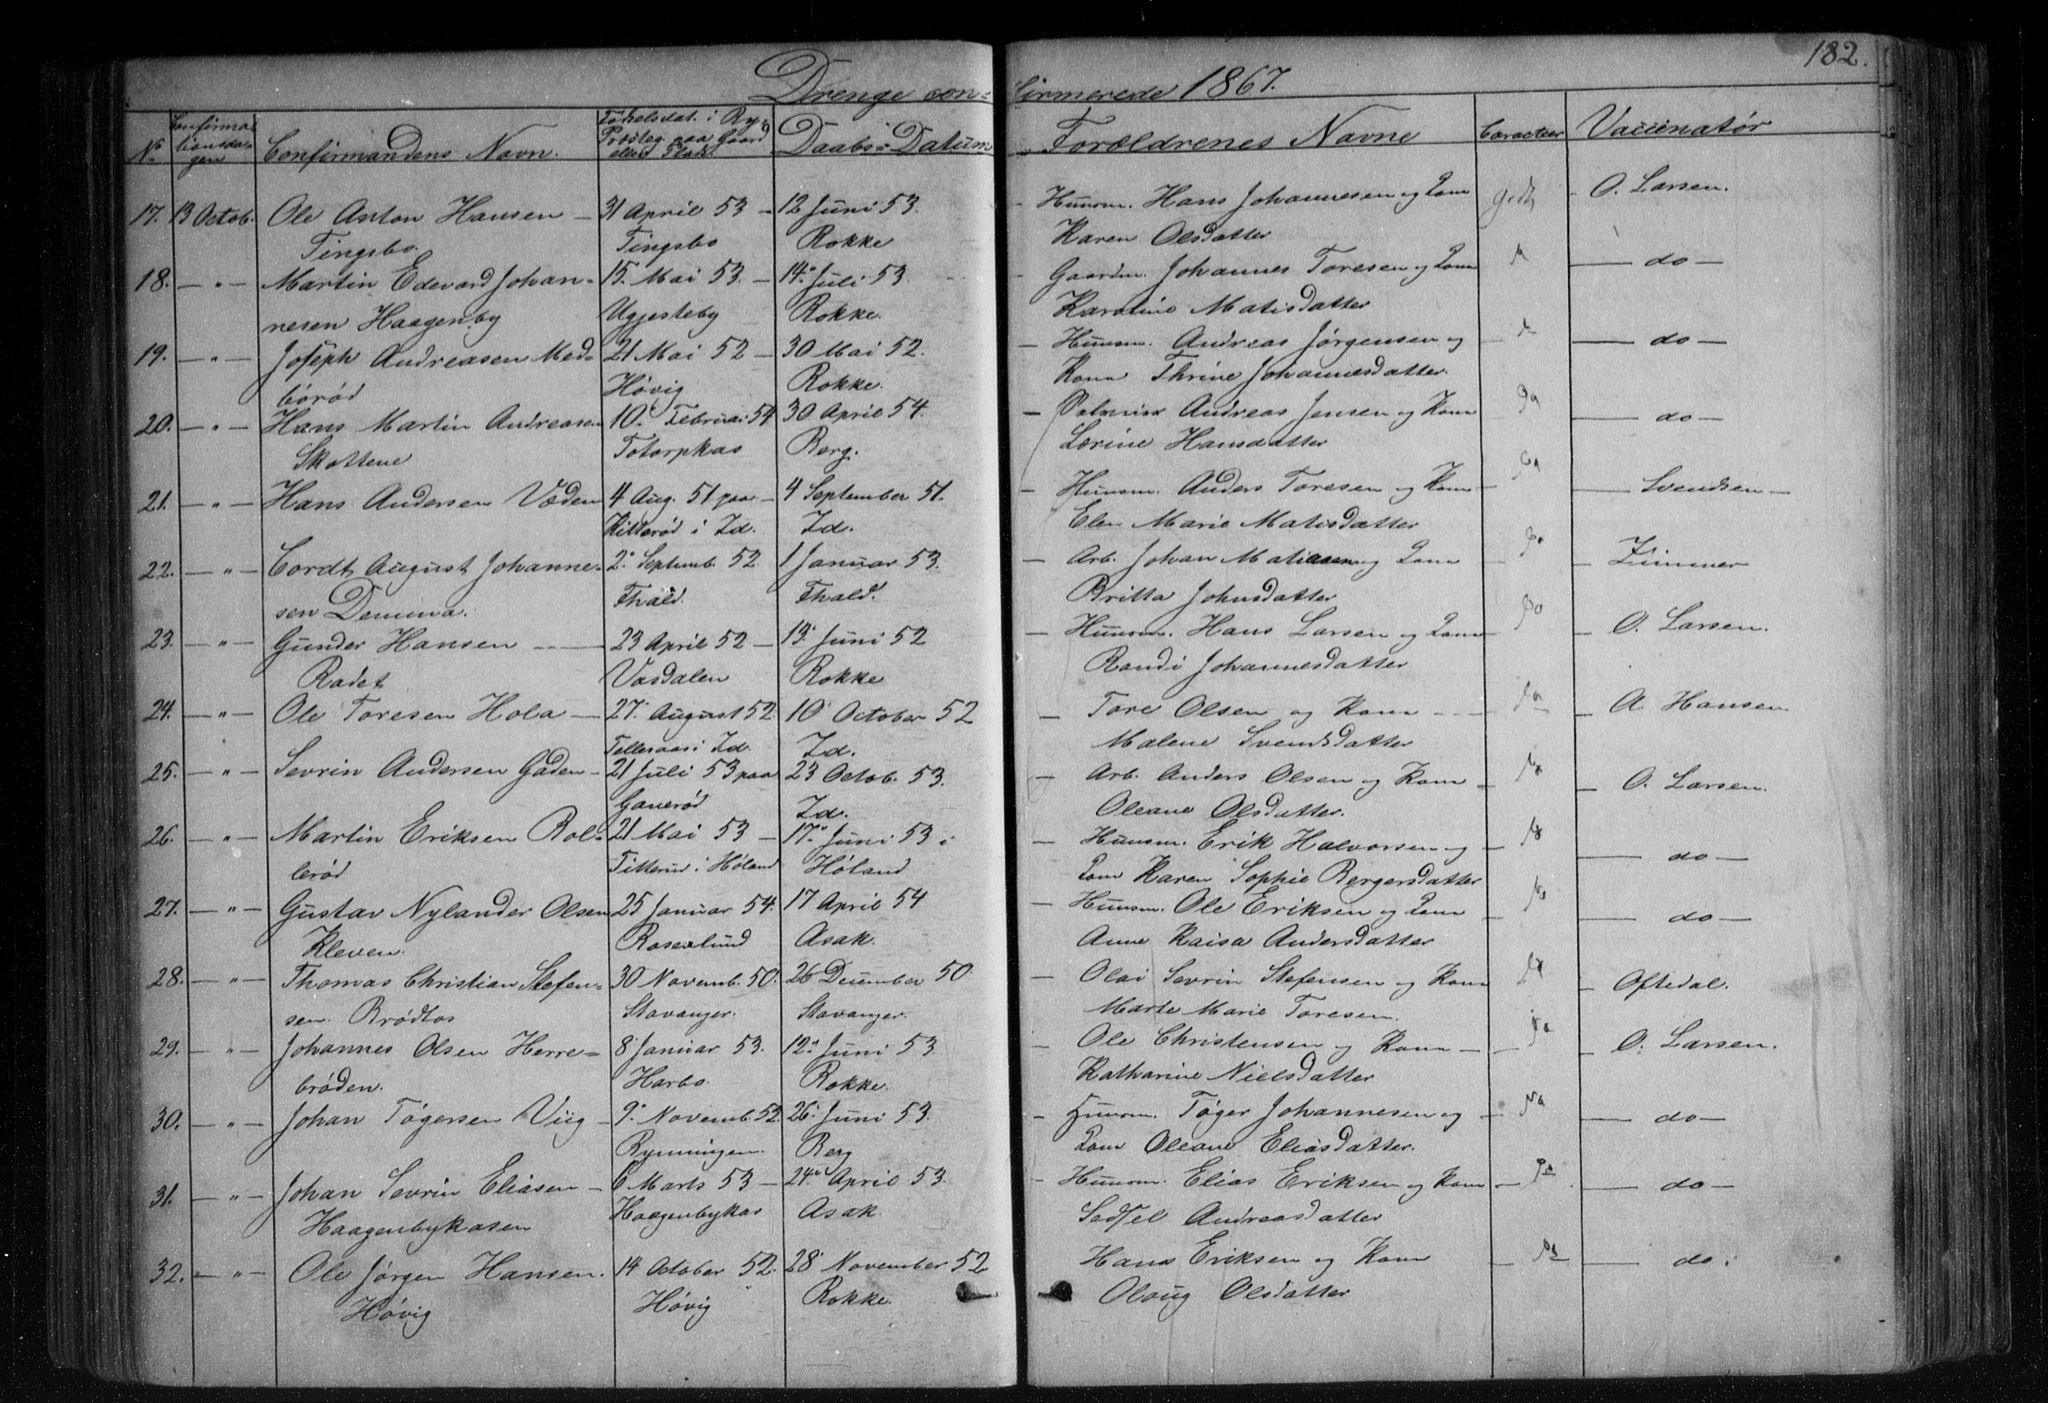 182.
Drenge con= firmerede 1867.
No Confirmationsdagen Confirmandens Navn. Fødselsdat. i Præsteg. paa Gaard eller Plads Daabs=Datum Forældrenes Navne Caracteer Vaccinatør
17. 13 Octob. Ole Anton Hansen — 31 April 53 — 12 Juni 53. Huusm. Hans Johannesen og Kone godt O. Larsen.
Tingsbo. Tingsbo Rokke Karen Olsdatter
18. — " — Martin Edevard Johan= 15. Mai 53. — 14. Juli 53 Gaardm. Johannes Toresen og Kone — do —
nesen Haagenby Ugjesteby Rokke. Karoline Matisdatter
19. — " — Joseph Andreasen Med= 21 Mai 52 — 30 Mai 52. Huusm. Andreas Jørgensen og — do —
børød Høvig Rokke. Kone Thrine Johannesdatter.
20. — " — Hans Martin Andreasen 10. Februar 54 30 April 54. — Andreas Jensen og Kone — do —
Skottene Totorpkas Berg. Lorine Hansdatter
21. — " — Hans Andersen Væden 4 Aug. 51 paa — 4 September 51. — Huusm. Anders Toresen og Kone — Svendsen —
Hillerød i Id. Id. Elen Marie Matisdatter
22. — " — Cordt August Johanne= 2. Septemb. 52. 1 Januar 53. — Arb. Johan Matiasen og Kone Zimmer
sen Demma. Fhald. Fhald. Britta Johnsdatter
23. — " — Gunder Hansen — 23 April 52 — 13. Juni 52 — Huusm. Hans Larsen og Kone — O. Larsen.
Radet Vasdalen Rokke Randi Johannesdatter
24. — " — Ole Toresen Hola — 27. August 52. 10 October 52 — Tore Olsen og Kone — A. Hansen
i Id. Id. Malene Svendsdatter
25. — " — Sevrin Andersen Gaden — 21 Juli 53 paa 23 Octob. 53. — Arb. Anders Olsen og Kone — O. Larsen.
Gaverød Id. Oleane Olsdatter.
26. — " — Martin Eriksen Rol= 21 Mai 53 — 17. Juni 53 i — Huusm. Erik Halvorsen og — do —
lerød i Høland Høland Kone Karen Sophie Bergersdatter
27. — " — Gustav Nylander Olsen 25 Januar 54. 17 April 54 — Huusm. Ole Eriksen og Kone — do —
Kleven. Rosenlund Asak. Anne Kaisa Andersdatter
28. — " — Thomas Christian Stefen= 30 Novemb. 50. 26 December 50 — Olai Sevrin Stefensen og Kone — Oftedal.
sen. Brødløs Stavanger. Stavanger. Marte Marie Toresen.
29. — " — Johannes Olsen Herre= 8 Januar 53. 12. Juni 53 — Ole Christensen og Kone — O. Larsen.
brøden. Harbo. Rokke. Katharine Nielsdatter
30. — " — Johan Tøgersen Viig — 9. Novemb. 52. 26. Juni 53. — Huusm. Tøger Johannesen og — do —
Rynningen. Berg Kone Oleane Eliasdatter.
31. — " — Johan Sevrin Eliasen — 6 Marts 53 — 24. April 53. — Huusm. Elias Eriksen og Kone — do —
Haagenbykasen Haagenbykas Asak. Sedsel Andreasdatter
32. — " — Ole Jørgen Hansen. 14 October 52. 28. November 52 Hans Eriksen og Kone — do.
Høvig Høvig Rokke. Olaug Olsdatter